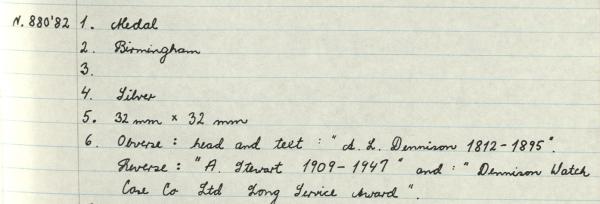 N. 880'82 1. Medal
2. Birmingham
3.
4. Silver
5. 32 mm × 32 mm
6. Obverse : head and text : " A. L. Dennison 1812-1895".
Reverse : " A. Stewart 1909-1947 " and : " Dennison Watch
Case Co Ltd Long Service Award ".